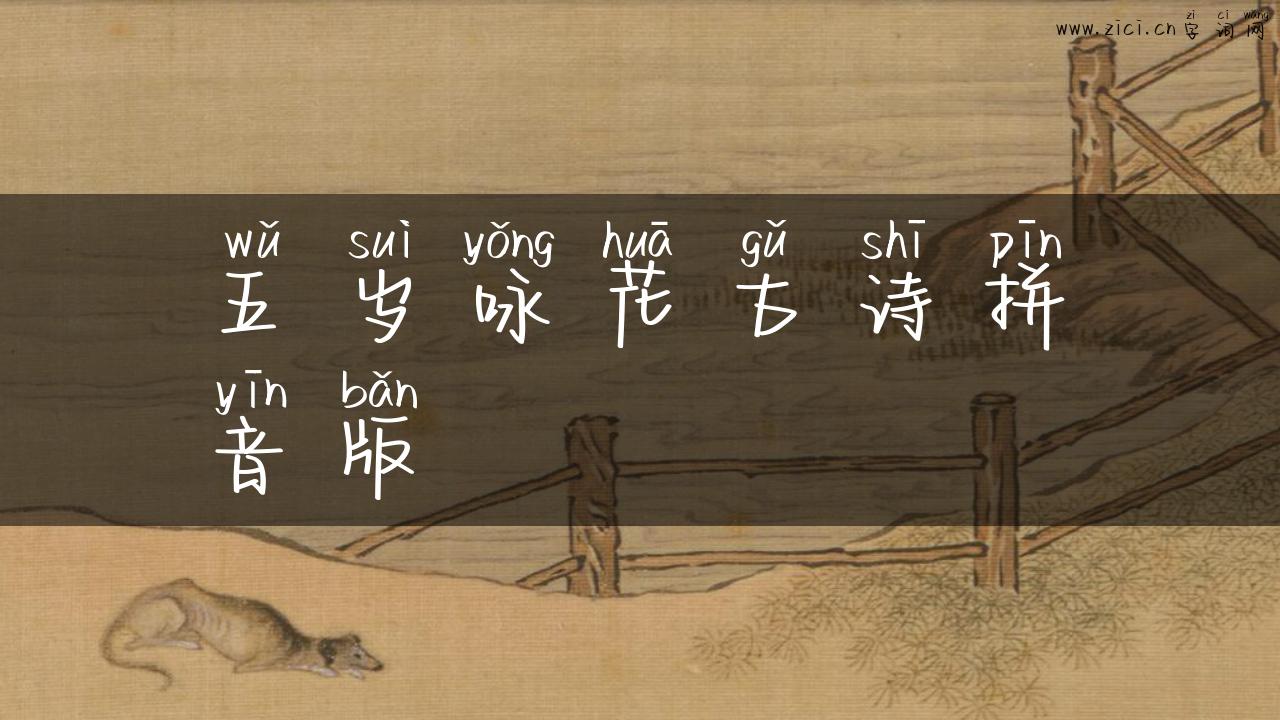 zì cí wǎng
www.zici.cn 字词网
wǔ suì yǒng huā gǔ shī pīn
五岁咏花古诗拼
yīn bǎn
音版